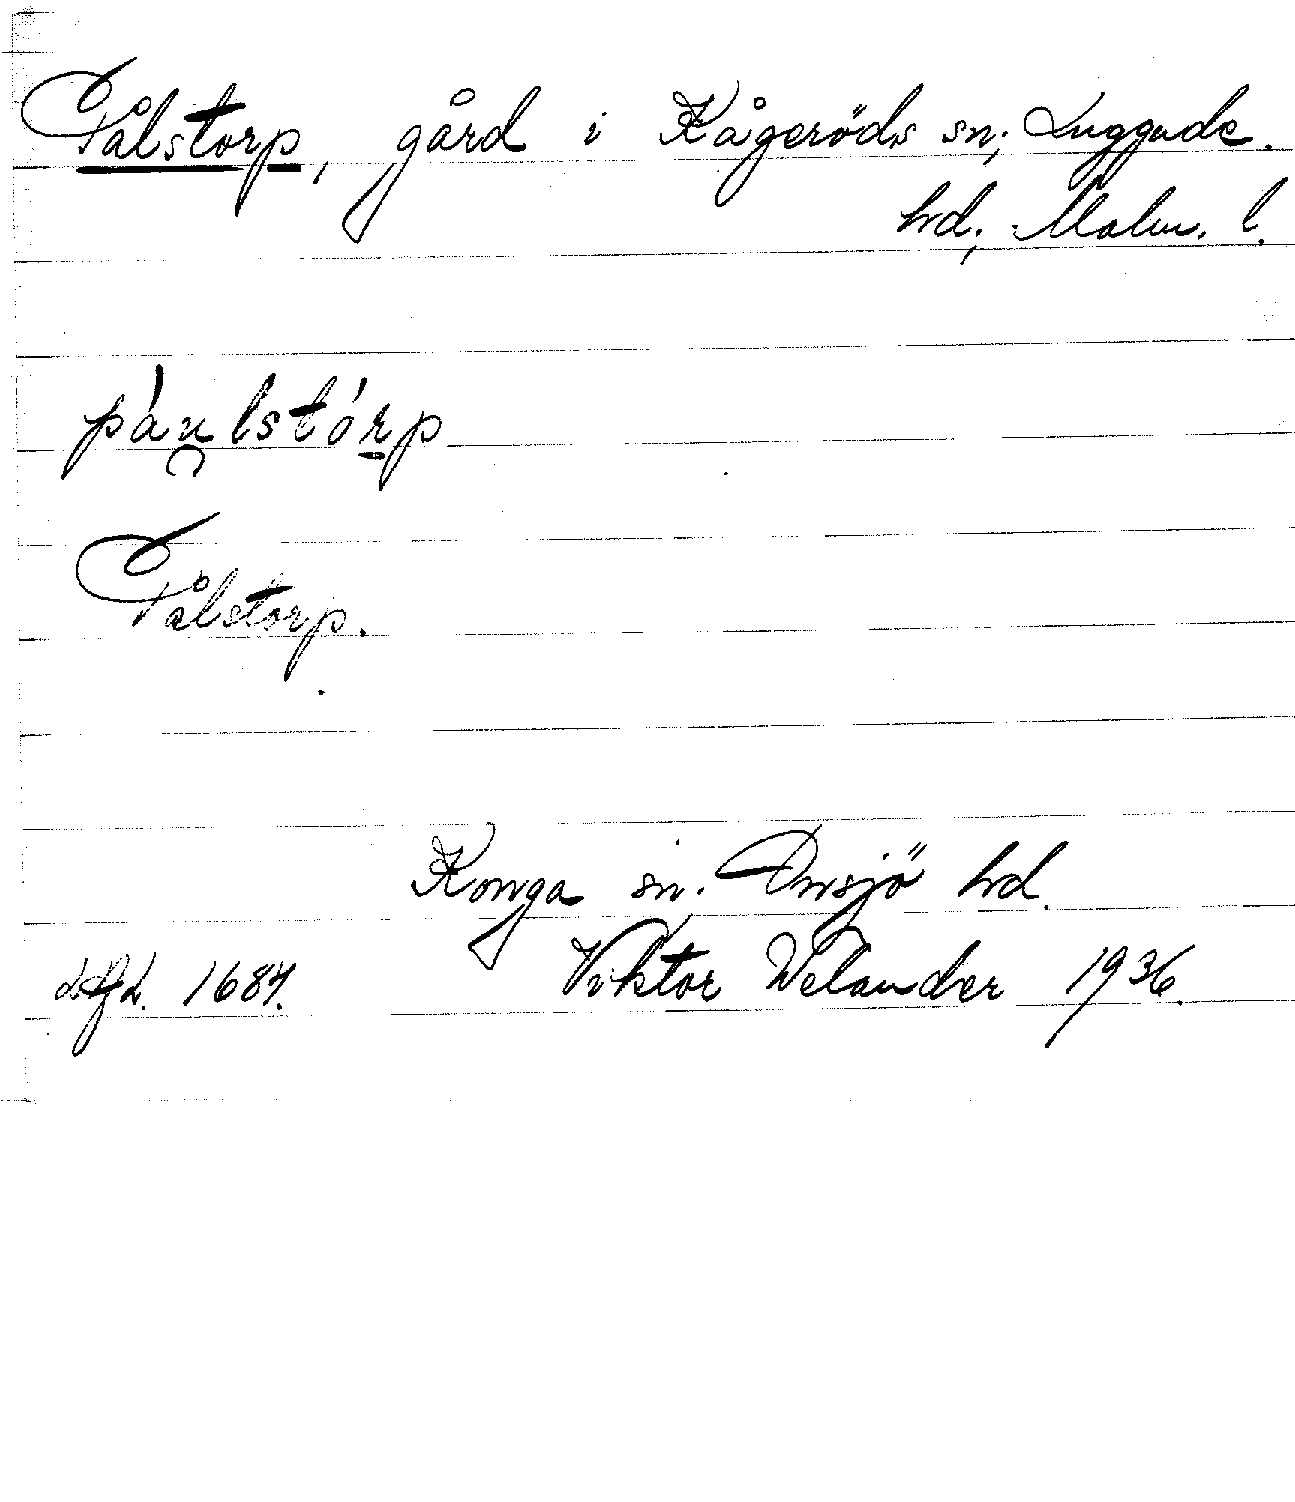 Pålstorp, gård i Kågeröds sn, Luggude.
hd, Malm. l.
páu̯lstórp
Pålstorp.
Konga sn. Onsjö hd.
Viktor Welander 1936.
LAL. 1687.